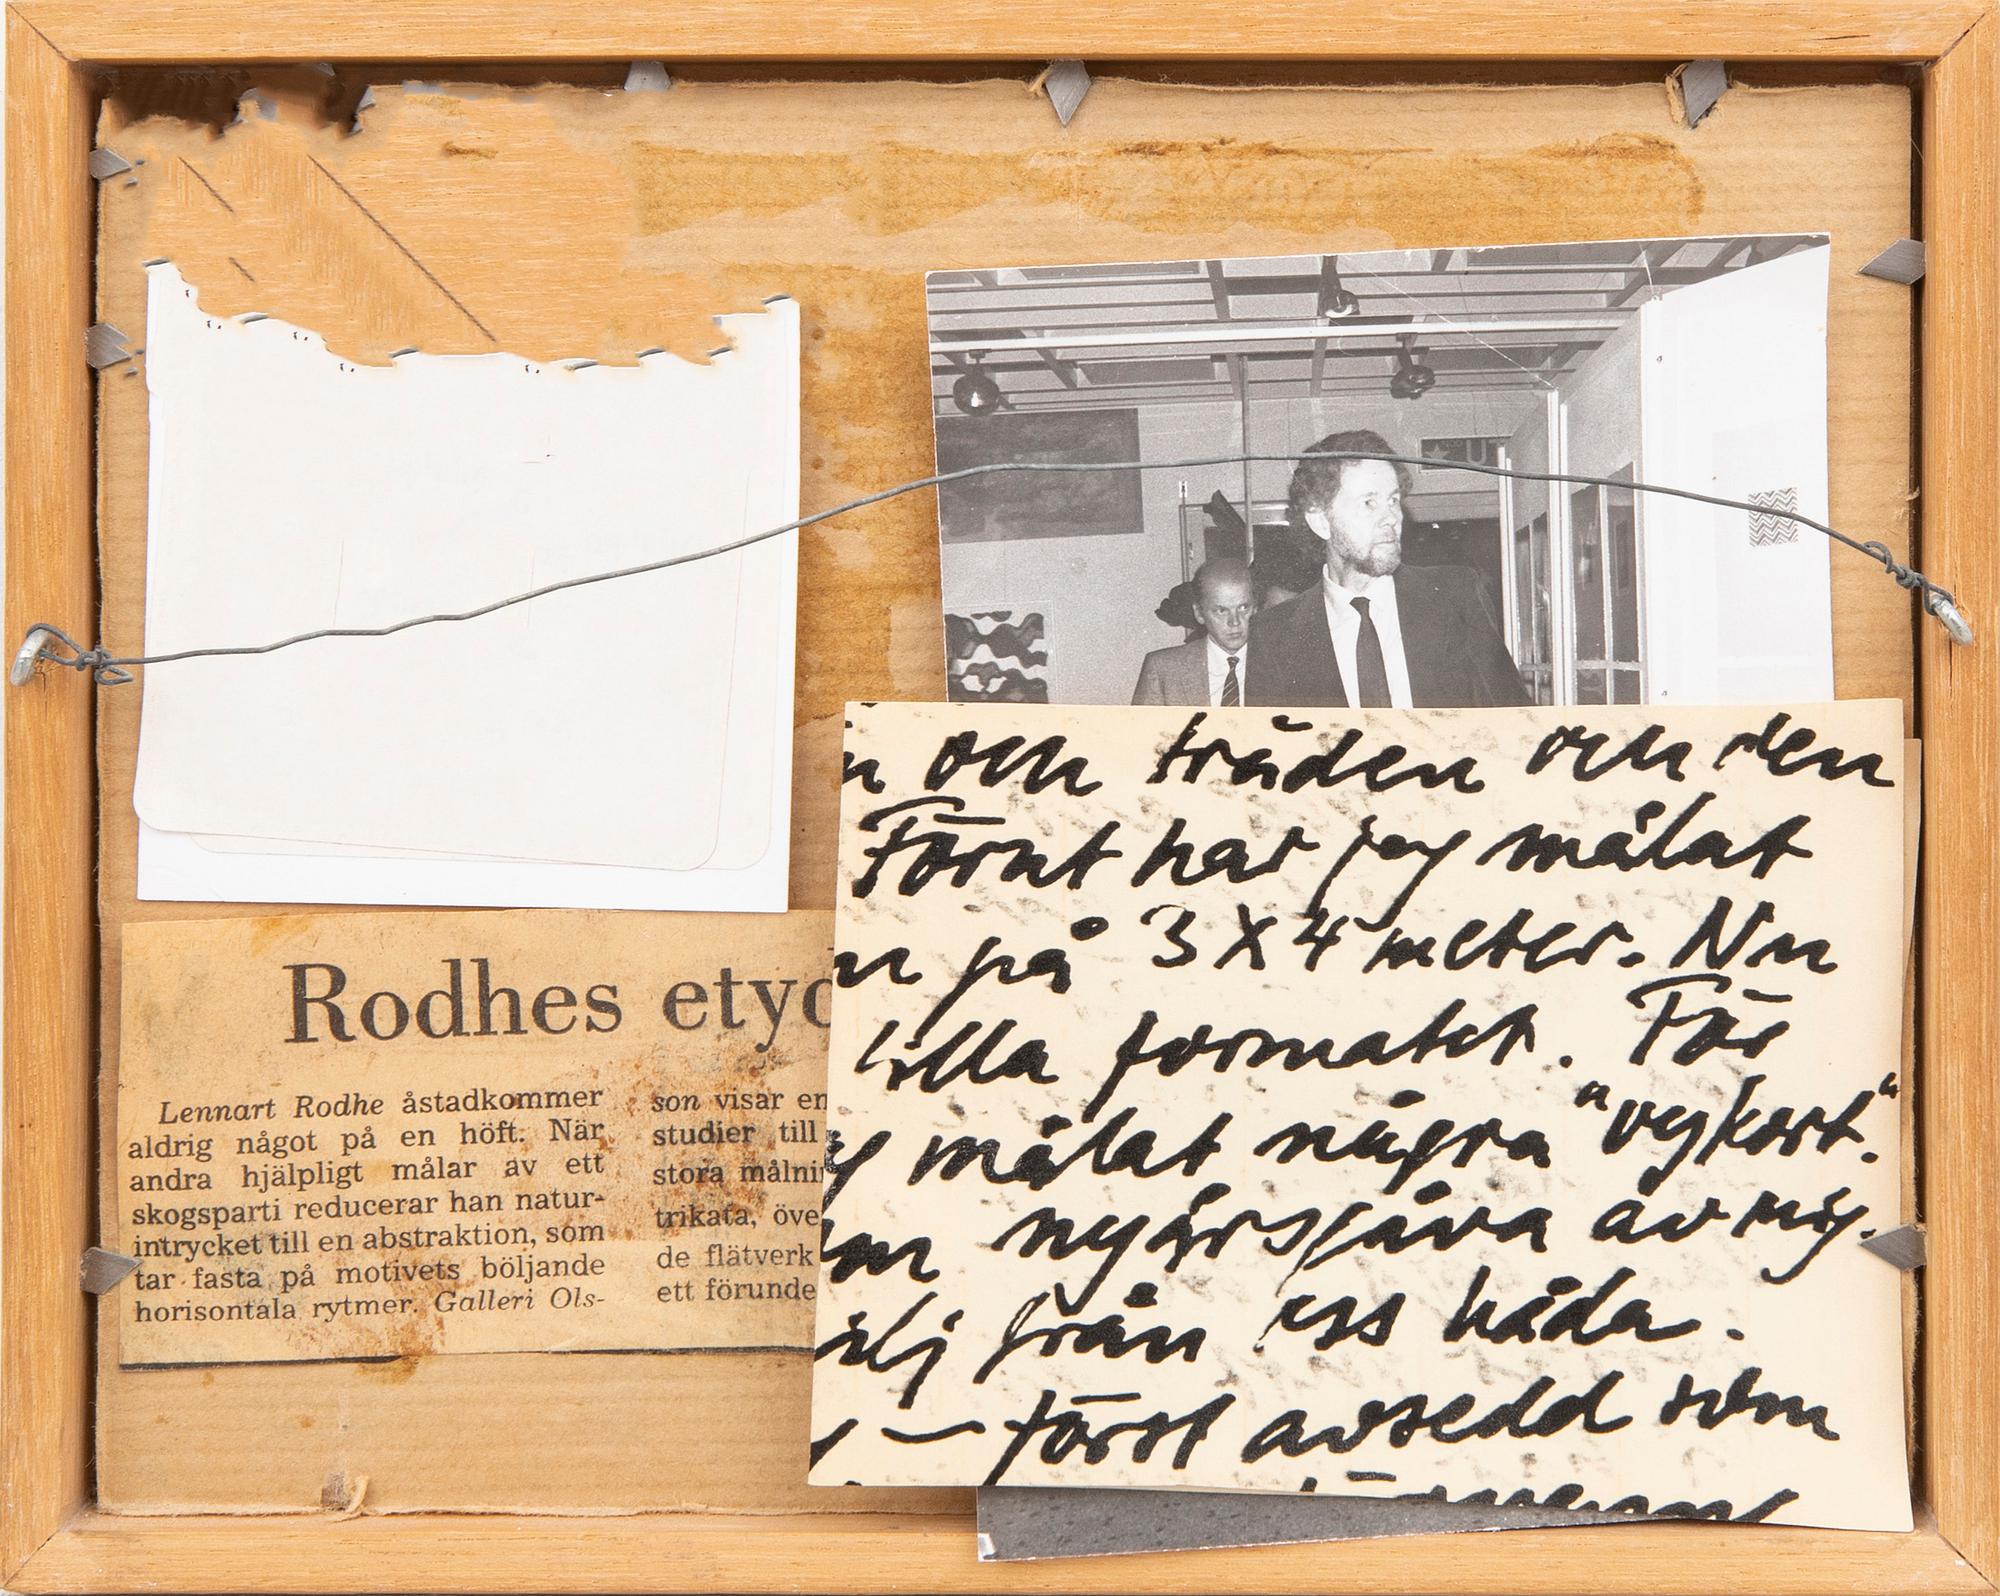 Rodhes etyd
Lennart Rodhe åstadkommer
aldrig något på en höft. När
andra hjälpligt målar av ett
skogsparti reducerar han natur-
intrycket till en abstraktion, som
tar fasta på motivets böljande
horisontala rytmer. Galleri Ols-
son visar en
studier till
stora målni
trikata, öve
de flätverk
ett förunde
n och tråden och den
Förut har jag målat
n på 3 X 4 meter. Nu
lilla formatet. För
målat några "vykort".
nyårsgåva av mig.
älj från oss båda.
– först avsedd som